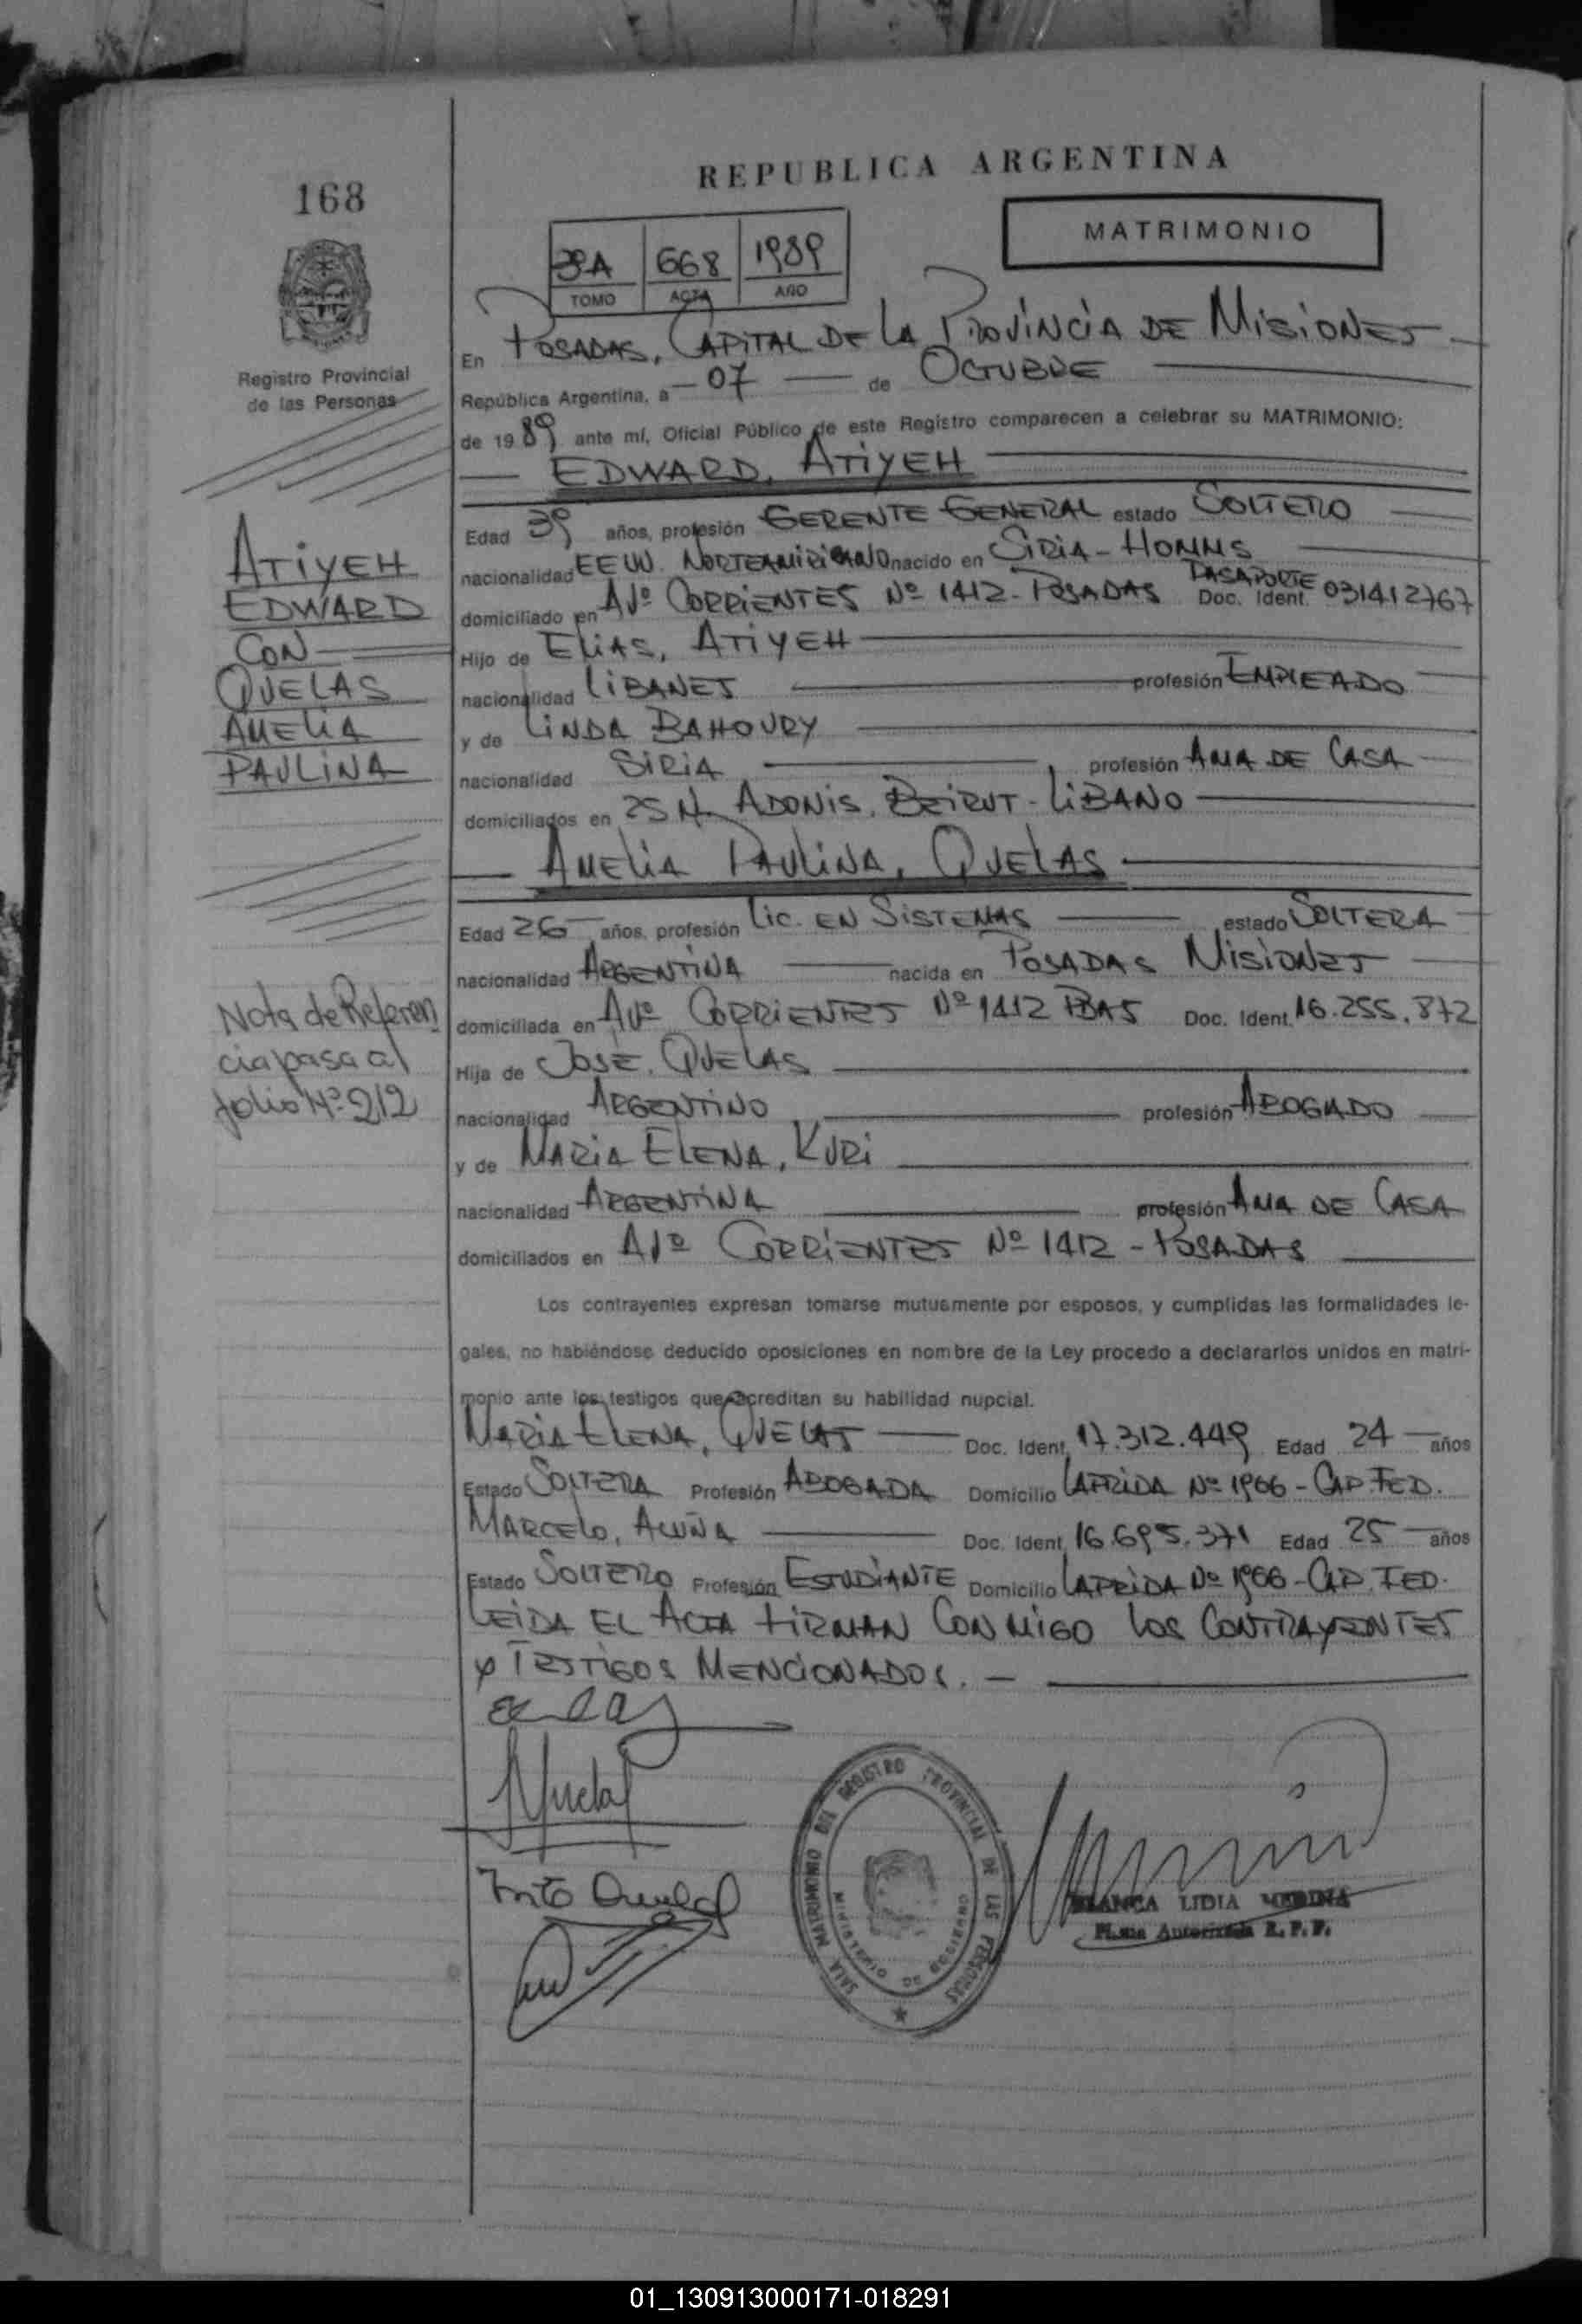 REPUBLICA ARGENTINA
168
MATRIMONIO
3ºA 668 1989
TOMO ACTA AÑO
Registro Provincial
de las Personas
En POSADAS, CAPITAL DE LA PROVINCIA DE MISIONES
República Argentina, a 07 de OCTUBRE
de 1989 ante mí, Oficial Público de este Registro comparecen a celebrar su MATRIMONIO:
EDWARD, ATIYEH
Edad 39 años, profesión GERENTE GENERAL estado SOLTERO
nacionalidad EE UU. nacido en SIRIA - HOMMS
domiciliado en AVº CORRIENTES Nº 1412 - POSADAS PASAPORTE Doc. Ident. 031412767
Hijo de ELIAS, ATIYEH
nacionalidad LIBANES profesión EMPLEADO
y de LINDA BAHOURY
nacionalidad SIRIA profesión AMA DE CASA
domiciliados en ADONIS, BEIRUT - LIBANO
AMELIA PAULINA, QUELAS
Edad 26 años, profesión LIC. EN SISTEMAS estado SOLTERA
nacionalidad ARGENTINA nacida en POSADAS MISIONES
domiciliada en AVº CORRIENTES Nº 1412 PDAS Doc. Ident. 16.255.872
Hija de JOSE, QUELAS
nacionalidad ARGENTINO profesión ABOGADO
y de MARIA ELENA, KURI
nacionalidad ARGENTINA profesión AMA DE CASA
domiciliados en AVº CORRIENTES Nº 1412 - POSADAS
Los contrayentes expresan tomarse mutuamente por esposos, y cumplidas las formalidades le-
gales, no habiéndose deducido oposiciones en nombre de la Ley procedo a declararlos unidos en matri-
monio ante los testigos que acreditan su habilidad nupcial.
MARIA ELENA, QUELAS Doc. Ident. 17.312.449 Edad 24 años
Estado SOLTERA Profesión ABOGADA Domicilio LAPRIDA Nº 1966 - CAP. FED.
MARCELO, ACUÑA Doc. Ident. 16.695.371 Edad 25 años
Estado SOLTERO Profesión ESTUDIANTE Domicilio LAPRIDA Nº 1966 - CAP. FED.
LEIDA EL ACTA FIRMAN CONMIGO LOS CONTRAYENTES
Y TESTIGOS MENCIONADOS. -
ATIYEH
EDWARD
CON
QUELAS
AMELIA
PAULINA
Nota de Referen
cia pasa al
folio Nº 212
SALA MATRIMONIO DEL REGISTRO PROVINCIAL DE LAS PERSONAS
MINISTERIO DE GOBIERNO
BLANCA LIDIA MEDINA
R. P. P.
01_130913000171-018291